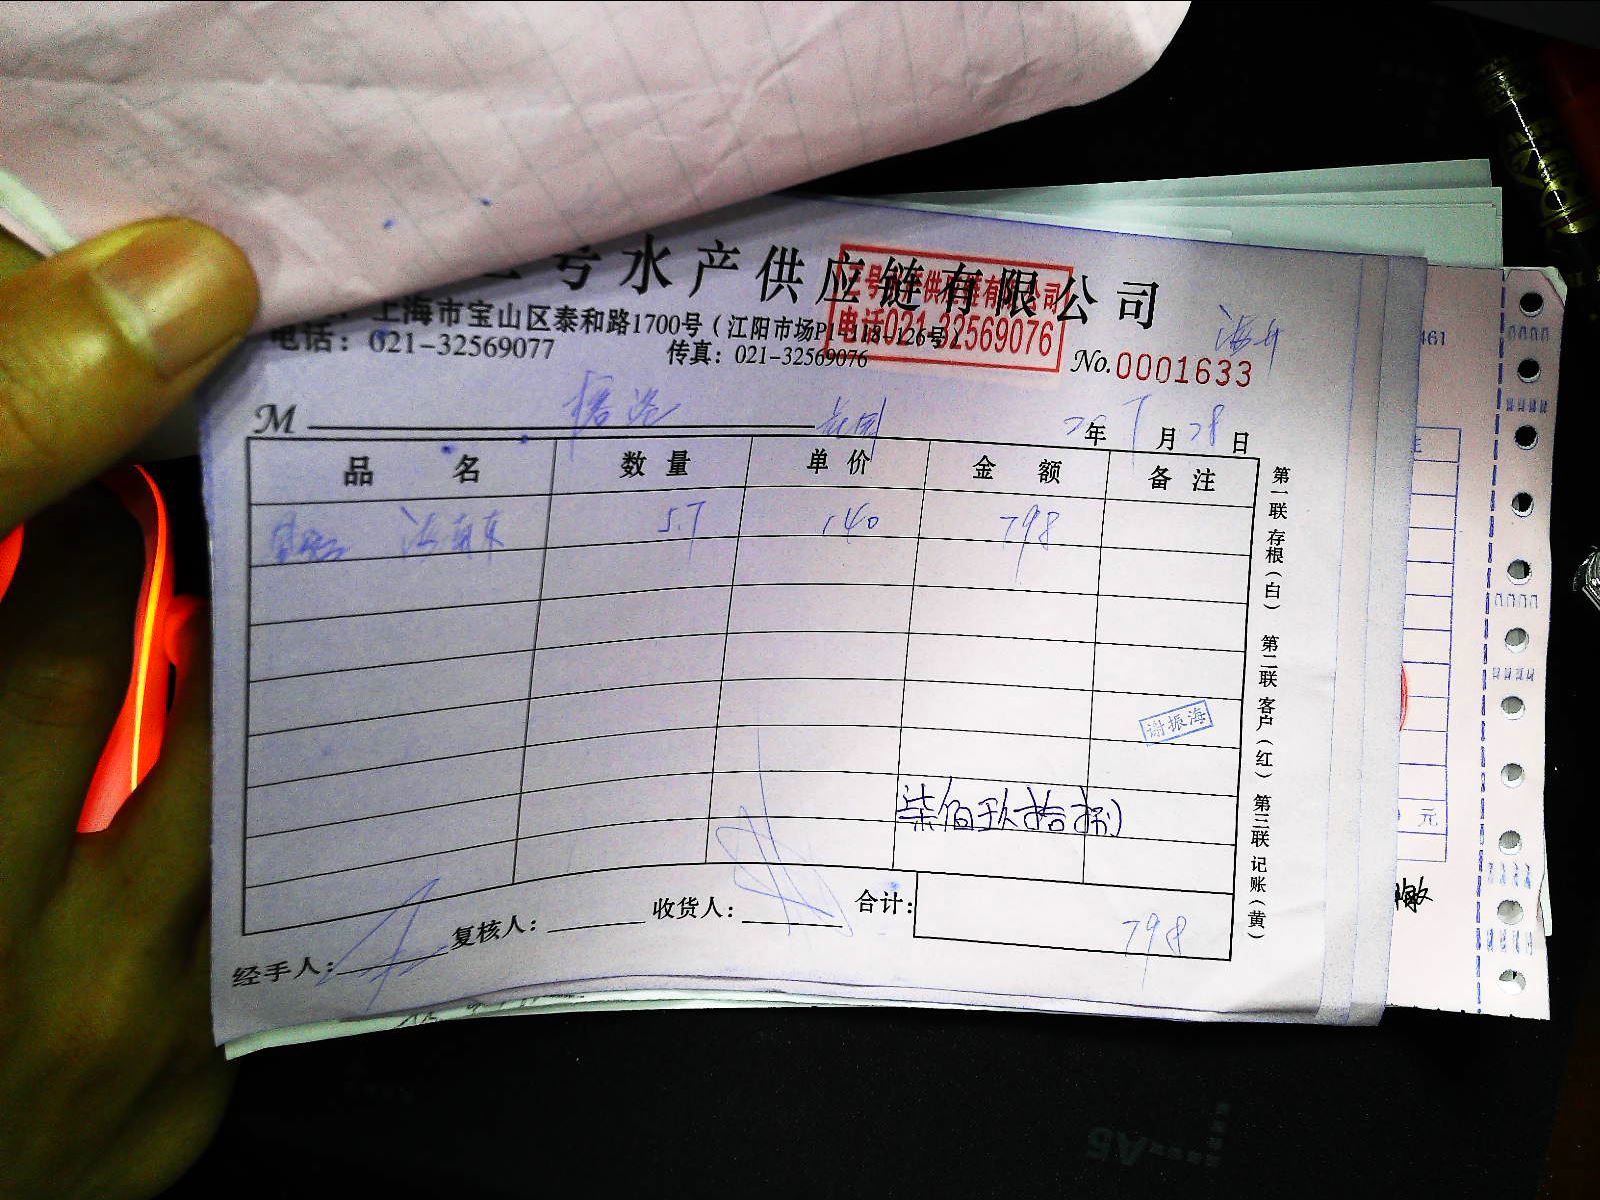 号水产供应链有限公司
上海市宝山区泰和路1700号（江阳市场P1-118-126号）
电话：021-32569077 传真：021-32569076
二号水产供应链有限公司
电话021-32569076
No.0001633
M
年 月 28 日
品名 数量 单价 金额 备注
5.7 140 798
谢振海
柒佰玖拾捌
合计： 798
经手人： 复核人： 收货人：
第一联 存根（白） 第二联 客户（红） 第三联 记账（黄）
461
元
敏